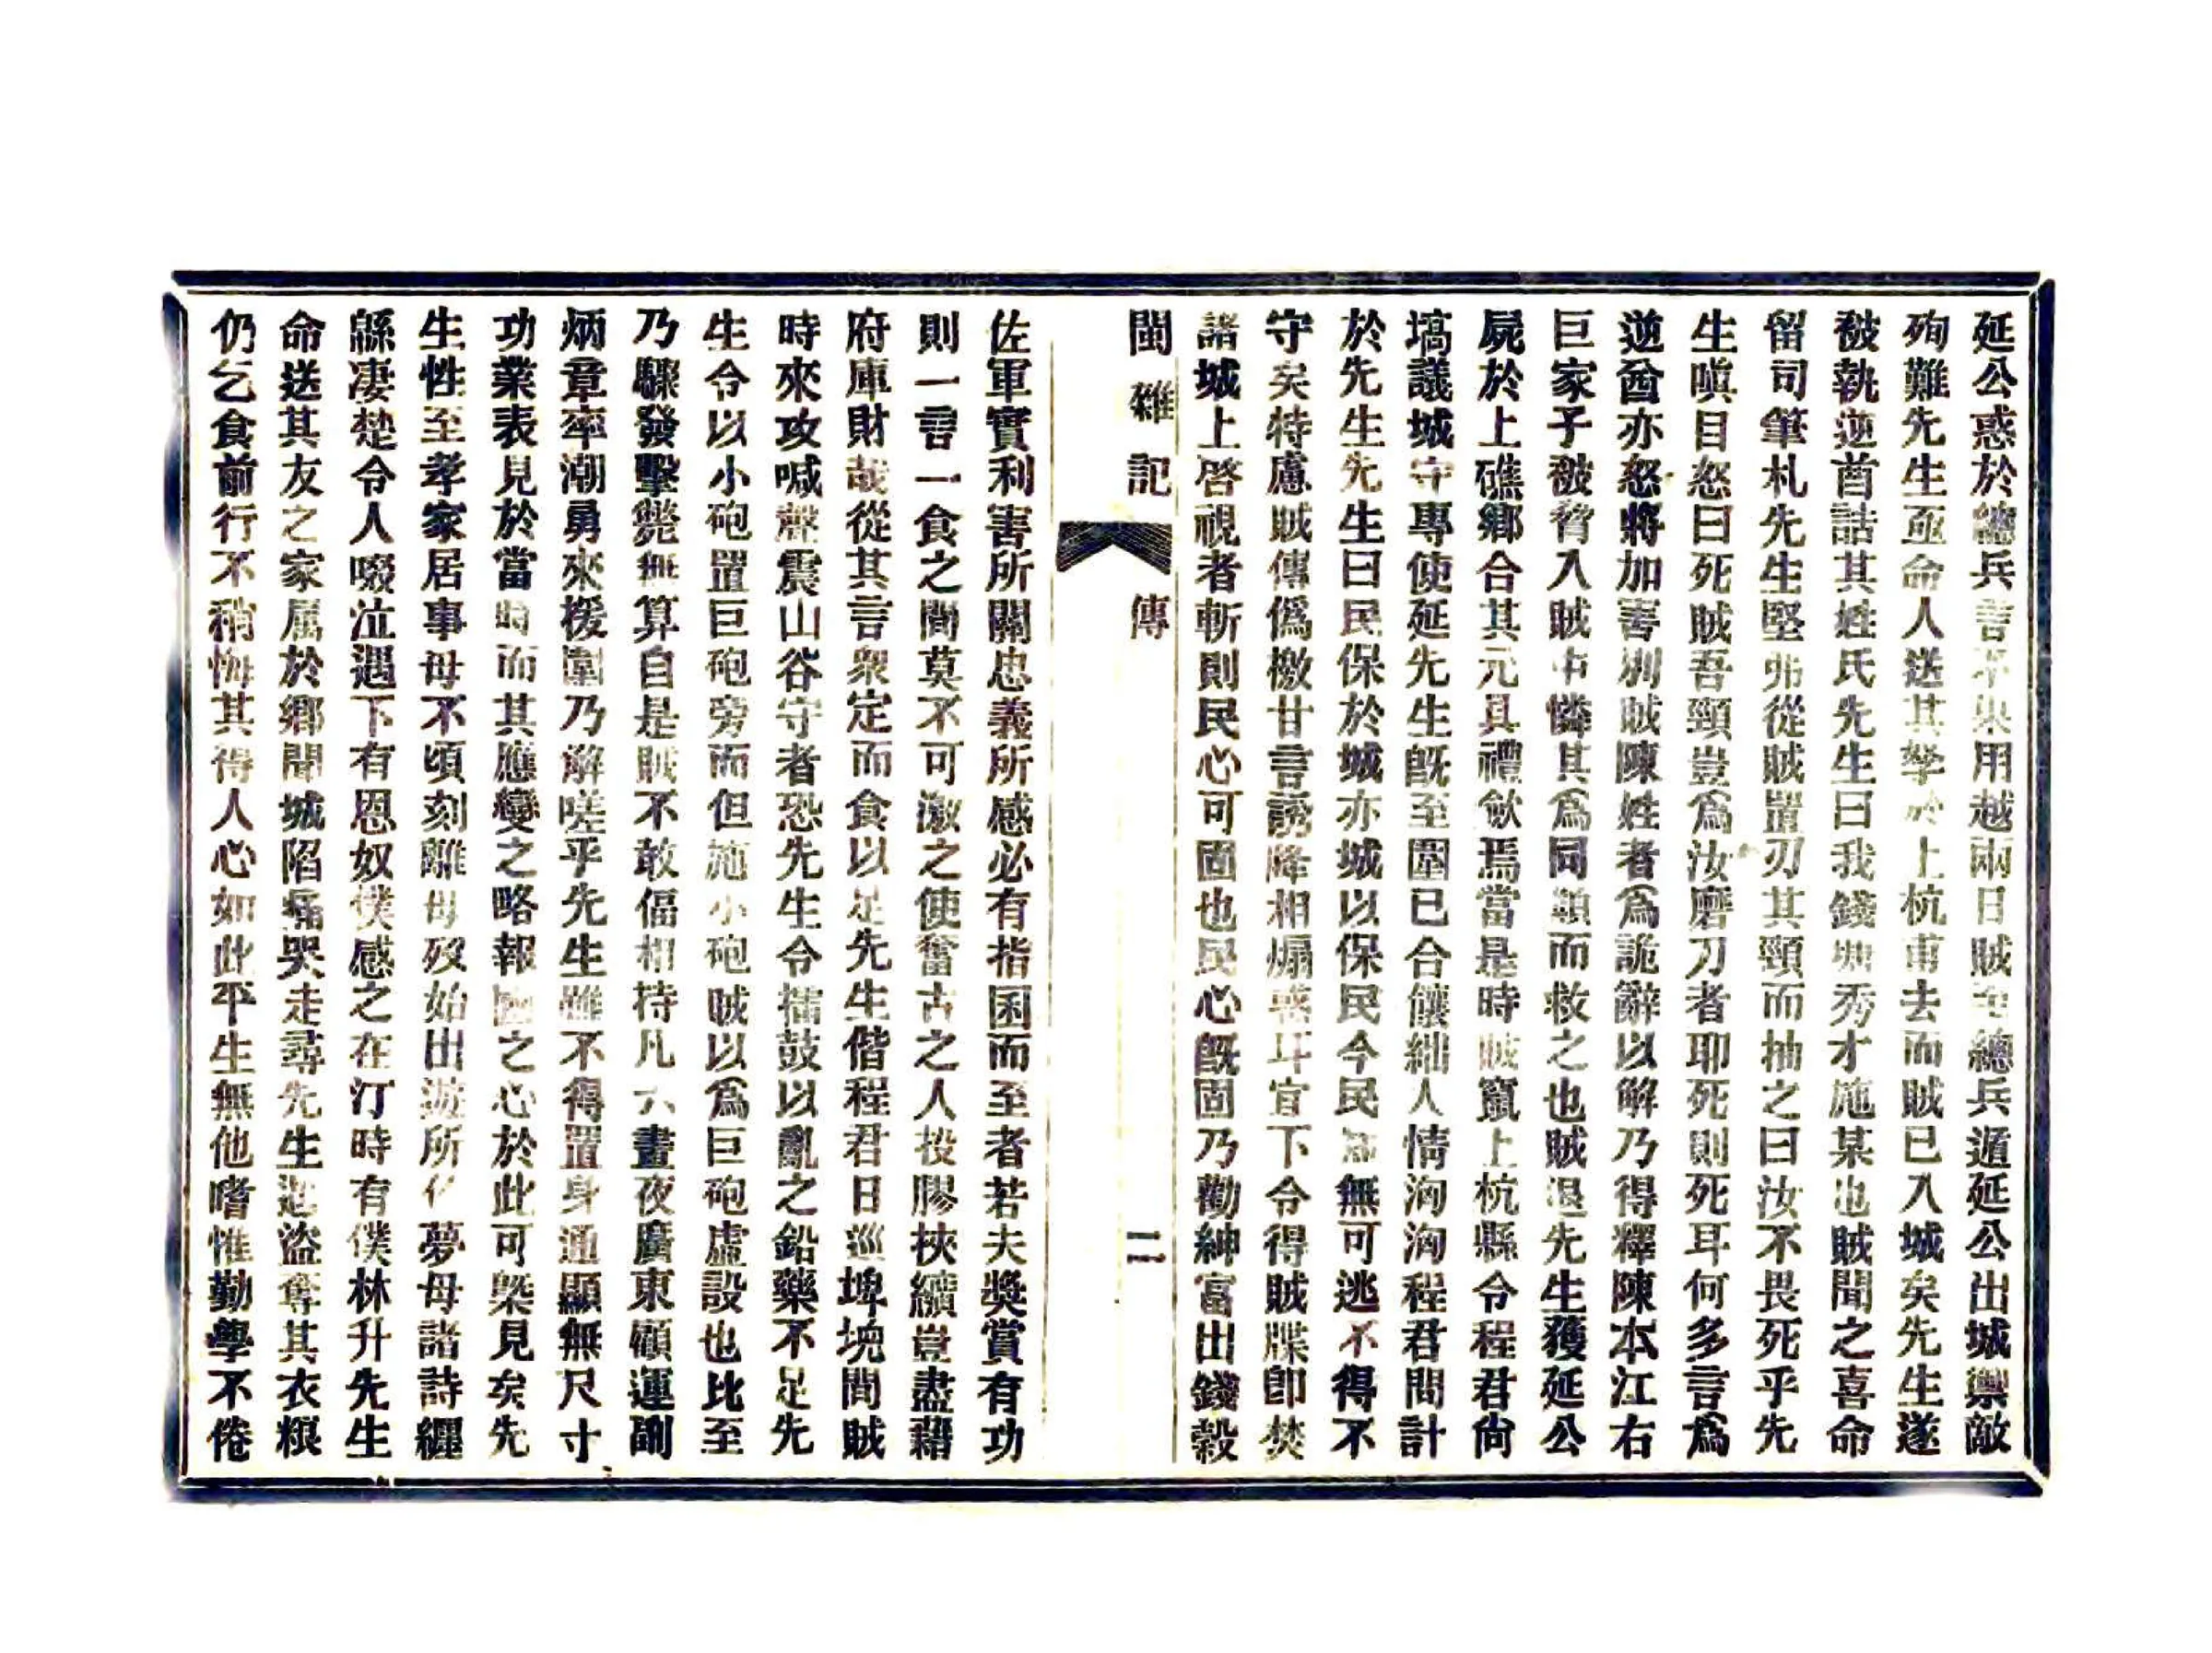 延公惑於總兵言不果用越兩日賊至總兵遁延公出城禦敵
殉難先生亟命人送其孥於上杭甫去而賊已入城矣先生遂
被執逆酋詰其姓氏先生曰我錢塘秀才施某也賊聞之喜命
留司筆札先生堅弗從賊置刃其頸而抽之曰汝不畏死乎先
生嗔目怒曰死賊吾頸豈為汝磨刀者耶死則死耳何多言為
逆酋亦怒將加害別賊陳姓者為詭辭以解乃得釋陳本江右
巨家子被脅入賊中憐其為同類而救之也賊退先生獲延公
屍於上礁鄉合其元具禮歛焉當是時賊竄上杭縣令程君尚
塙議城守專使延先生既至圍已合餽絀人情洶洶程君問計
於先生先生曰民保於城亦城以保民今民知無可逃不得不
守矣特慮賊傳偽檄甘言誘降相煽惑耳宜下令得賊牒卽焚
諸城上啓視者斬則民心可固也民心既固乃勸紳富出錢榖
閩雜記 傳 二
佐軍實利害所關忠義所感必有指囷而至者若夫獎賞有功
則一言一食之間莫不可激之使奮古之人投膠挾纊豈盡藉
府庫財哉從其言衆定而食以足先生偕程君日巡埤堄間賊
時來攻喊聲震山谷守者恐先生令擂鼓以亂之鉛藥不足先
生令以小砲置巨砲旁而但施小砲賊以為巨砲虛設也比至
乃驟發擊斃無算自是賊不敢偪相持凡六晝夜廣東顧運副
炳章率潮勇來援圍乃解嗟乎先生雖不得置身通顯無尺寸
功業表見於當時而其應變之略報國之心於此可槩見矣先
生性至孝家居事母不頃刻離母歿始出游所作夢母諸詩纏
緜凄楚令人啜泣遇下有恩奴僕感之在汀時有僕林升先生
命送其友之家属於鄉聞城陷痛哭走尋先生遇盜奪其衣粮
仍乞食前行不稍悔其得人心如此平生無他嗜惟勤學不倦